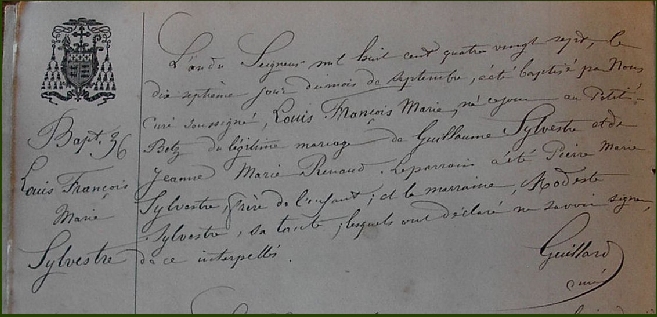 L'an du Seigneur mil huit cent quatre vingt sept, le
dix septième jour du mois de septembre, a été baptisé par Nous
Curé soussigné, Louis François Marie, né ce jour au Petit-
Betz du légitime mariage de Guillaume Sylvestre et de
Jeanne Marie Renaud. Le parrain a été Pierre Marie
Sylvestre, frère de l'enfant; et la marraine, Modeste
Sylvestre, sa tante; lesquels ont déclaré ne savoir signer,
de ce interpellés.
Guillard
curé
Bapt. 36
Louis François
Marie
Sylvestre